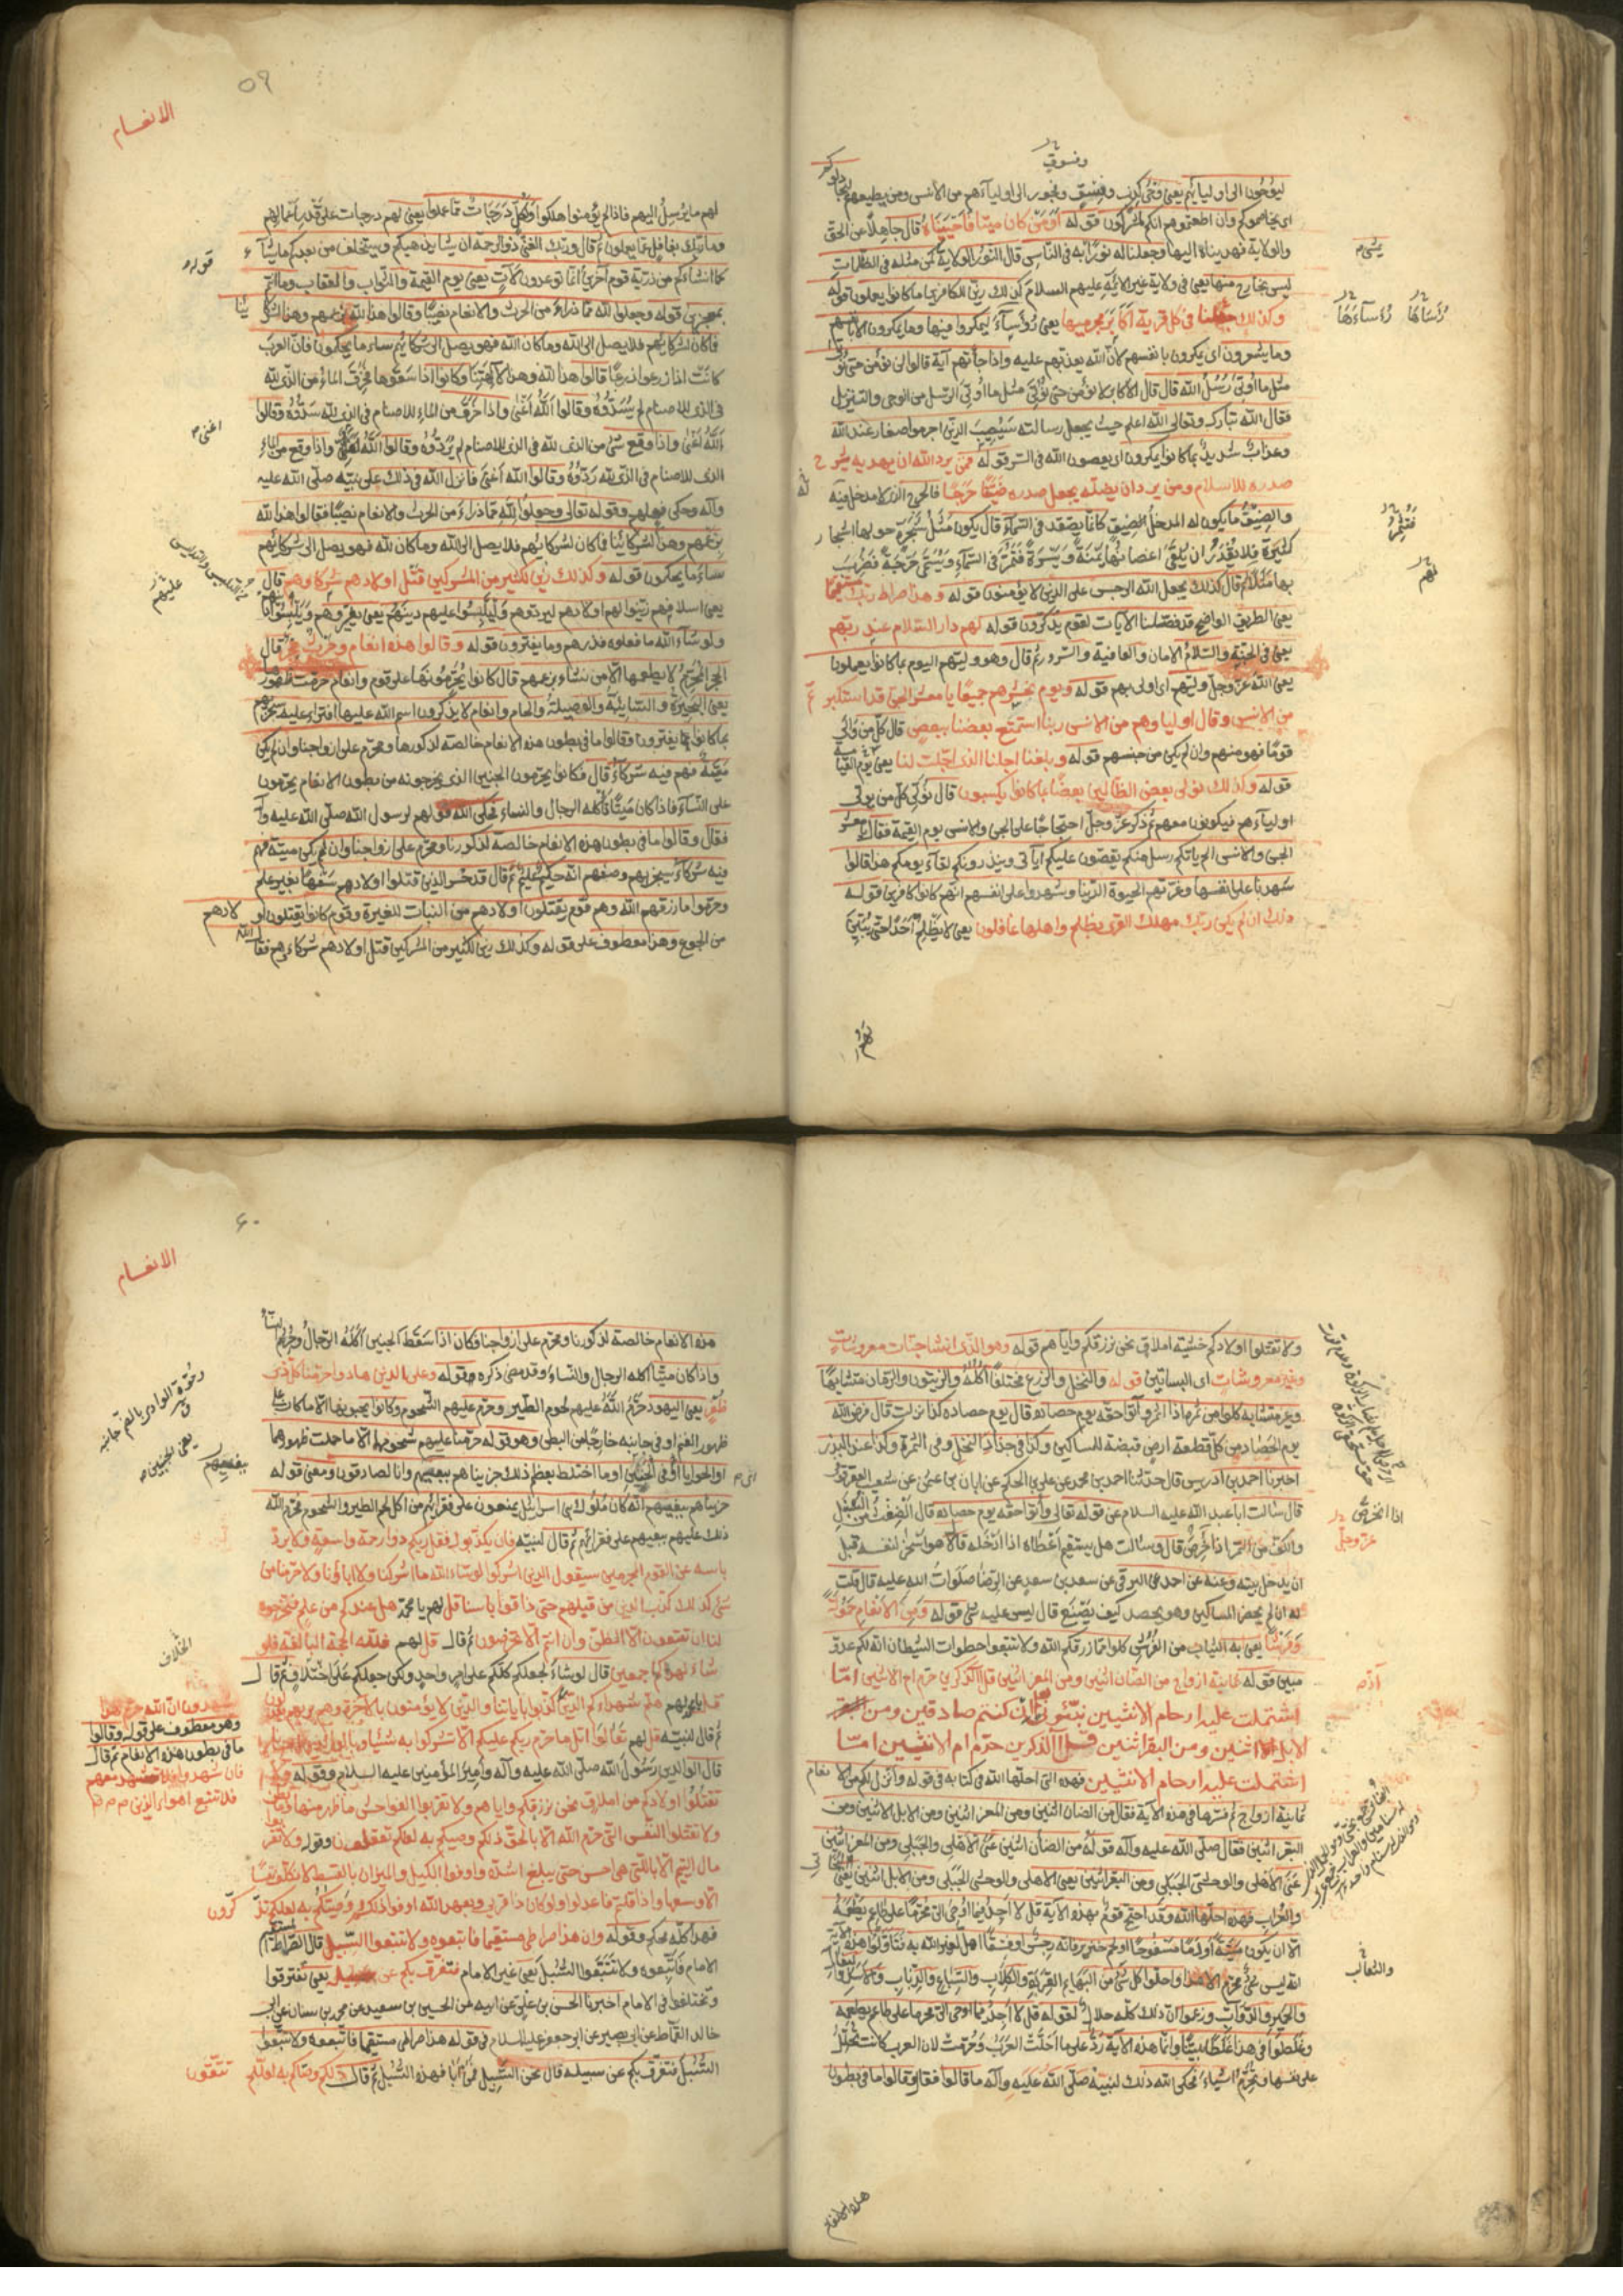 وفسوق
ليوحون الى اوليائهم يعنى وحى كذب وفسق وفجور الى اوليآءهم من الانس ومن يطيعهم
اى يخاصموكم وان اطعتموهم انكم لمشركون قوله او من كان ميتا فاحييناه قال جاهلا عن الحق
والولاية فهديناه اليها وجعلنا له نورا يمشى به فى الناس قال النور الولاية كمن مثله فى الظلمات
ليس بخارج منها يعنى فى ولاية غير الائمة عليهم السلام كذلك زين للكافرين ما كانوا يعملون قوله
وكذلك جعلنا فى كل قرية اكابر مجرميها يعنى رؤسآء ليمكروا فيها وما يمكرون الا بانفسهم
وما يشعرون اى يمكرون بانفسهم لان الله يعذبهم عليه واذا جآءتهم آية قالوا لن نؤمن حتى نؤتى
مثل ما اوتى رسل الله قال قال الاكابر لن نؤمن حتى نؤتى مثل ما اوتى الرسل من الوحى والتنزيل
فقال الله تبارك وتعالى الله اعلم حيث يجعل رسالته سيصيب الذين اجرموا صغار عند الله
وعذاب شديد بما كانوا يمكرون اى يعصون الله فى السر قوله فمن يرد الله ان يهديه يشرح
صدره للاسلام ومن يرد ان يضله يجعل صدره ضيقا حرجا فالحرج الذى لا مدخل فيه
والضيق ما يكون له المدخل الضيق كانما يصعد فى السمآء قال يكون مثل شجرة حولها اشجار
كثيرة فلا تقدر ان تلقى اغصانها يمنة ويسرة فتمر فى السمآء ويسمى حرجة فضرب
بها مثلا قال كذلك يجعل الله الرجس على الذين لا يؤمنون قوله وهذا صراط ربك مستقيما
يعنى الطريق الواضح قد فصلنا الآيات لقوم يذكرون قوله لهم دار السلام عند ربهم
يعنى فى الجنة والسلام الامان والعافية والسرور ثم قال وهو وليهم اليوم بما كانوا يعملون
يعنى الله عز وجل وليهم اى اولى بهم قوله ويوم نحشرهم جميعا يا معشر الجن قد استكثرتم
من الانس وقال اولياؤهم من الانس ربنا استمتع بعضنا ببعض قال كل من والى
قوما فهو منهم وان لم يكن من جنسهم قوله وبلغنا اجلنا الذى اجلت لنا يعنى يوم القيامة
قوله وكذلك نولى بعض الظالمين بعضا بما كانوا يكسبون قال نولى كل من يولى
اوليآءهم فيكونون معهم ثم ذكر عز وجل احتجاجا على الجن والانس يوم القيمة فقال يا معشر
الجن والانس الم ياتكم رسل منكم يقصون عليكم آياتى وينذرونكم لقآء يومكم هذا قالوا
شهدنا على انفسنا وغرتهم الحيوة الدنيا وشهدوا على انفسهم انهم كانوا كافرين قوله
ذلك ان لم يكن ربك مهلك القرى بظلم واهلها غافلون يعنى لا يظلم احدا حتى يبين
٥٩
الانعام
لهم ما يرسل اليهم فاذا لم يؤمنوا هلكوا ولكل درجات مما عملوا يعنى لهم درجات على قدر اعمالهم
وما ربك بغافل عما يعملون ثم قال وربك الغنى ذو الرحمة ان يشا يذهبكم ويستخلف من بعدكم ما يشآء
كما انشاءكم من ذرية قوم آخرين انما توعدون لآت يعنى يوم القيمة والثواب والعقاب وما انتم
بمعجزين قوله وجعلوا لله مما ذراء من الحرث والانعام نصيبا وقالوا هذا لله بزعمهم وهذا لشركائنا
فما كان لشركائهم فلا يصل الى الله وما كان لله فهو يصل الى شركائهم ساء ما يحكمون فان العرب
كانت اذا زرعوا زرعا قالوا هذا لله وهذا لآلهتنا وكانوا اذا سقوها فخرق الماء من الذى لله
فى الذى للاصنام لم يسدوه وقالوا الله اغنى واذا خرق من الماء للاصنام فى الذى لله سدوه وقالوا
الله اغنى واذا وقع شئ من الذى لله فى الذى للاصنام لم يردوه وقالوا الله اغنى واذا وقع من الماء
الذى للاصنام فى الذى لله ردوه وقالوا الله اغنى فانزل الله فى ذلك على نبيه صلى الله عليه
وآله وحكى فعلهم وقوله تعالى وجعلوا لله مما ذراء من الحرث والانعام نصيبا فقالوا هذا لله
بزعمهم وهذا لشركائنا فما كان لشركائهم فلا يصل الى الله وما كان لله فهو يصل الى شركائهم
ساء ما يحكمون قوله وكذلك زين لكثير من المشركين قتل اولادهم شركاؤهم قال
يعنى اسلافهم زينوا لهم اولادهم ليردوهم وليلبسوا عليهم دينهم يعنى يغيروهم ويلبسوا
ولو شآء الله ما فعلوه فذرهم وما يفترون قوله وقالوا هذه انعام وحرث حجر قال
الحجر المحرم لا يطعمها الا من نشاء بزعمهم قال كانوا يحرمونها على قوم وانعام حرمت ظهورها
يعنى البحيرة والسائبة والوصيلة والحام وانعام لا يذكرون اسم الله عليها افتراء عليه سيجزيهم
بما كانوا يفترون وقالوا ما فى بطون هذه الانعام خالصة لذكورنا ومحرم على ازواجنا وان يكن
ميتة فهم فيه شركاء قال فكانوا يحرمون الجنين الذى يخرجونه من بطون الانعام يحرمون
على النسآء فاذا كان ميتا ياكله الرجال والنساء فحكى الله قولهم لرسول الله صلى الله عليه وآله
فقال وقالوا ما فى بطون هذه الانعام خالصة لذكورنا ومحرم على ازواجنا وان لم يكن ميتة فهم
فيه شركاء سيجزيهم وصفهم انه حكيم عليم ثم قال قد خسر الذين قتلوا اولادهم سفها بغير علم
وحرموا ما رزقهم الله وهم قوم يقتلون اولادهم من البنات للغيرة وقوم كانوا يقتلون اولادهم
من الجوع وهذا معطوف على قوله وكذلك زين لكثير من المشركين قتل اولادهم شركاؤهم فقال الله
ولا تقتلوا اولادكم خشية املاق نحن نرزقكم واياهم قوله وهو الذى انشا جنات معروشات
وغير معروشات اى البساتين قوله والنخل والزرع مختلفا اكله والزيتون والرمان متشابها
وغير متشابه كلوا من ثمره اذا اثمر وآتوا حقه يوم حصاده قال يوم حصاده كذا نزلت قال فرض الله
يوم الحصاد من كل قطعة ارض قبضة للمساكين وكذا فى جذاذ النخل وفى التمرة وكذا عند البذر
اخبرنا احمد بن ادريس قال حدثنا احمد بن محمد عن على بن الحكم عن ابان بن عثمن عن شعيب العقرقوفى
قال سالت ابا عبد الله عليه السلام عن قوله تعالى وآتوا حقه يوم حصاده قال الضغث من السنبل
والكف من التمر اذا خرص قال وسالت هل يستقيم اعطاؤه اذا ادخله قال لا هو اسخى لنفسه قبل
ان يدخل بيته وعنه عن احمد عن البرقى عن سعد بن سعد عن الرضا صلوات الله عليه قال قلت
له ان لم يحضر المساكين وهو يحصد كيف يصنع قال ليس عليه شئ قوله ومن الانعام حمولة
وفرشا يعنى به الثياب من الفرش كلوا مما رزقكم الله ولا تتبعوا خطوات الشيطان انه لكم عدو
مبين قوله ثمانية ازواج من الضان اثنين ومن المعز اثنين قل الذكرين حرم ام الانثيين اما
اشتملت عليه ارحام الانثيين نبئونى ان كنتم صادقين ومن
الابل اثنين ومن البقر اثنين قل آلذكرين حرم ام الانثيين اما
اشتملت عليه ارحام الانثيين فهذه التى احلها الله فى كتابه فى قوله وانزل لكم من الانعام
ثمانية ازواج ثم فسرها فى هذه الآية فقال من الضان اثنين ومن المعز اثنين ومن الابل اثنين ومن
البقر اثنين فقال صلى الله عليه وآله قوله من الضأن اثنين عنى الاهلى والجبلى ومن المعز اثنين
عنى الاهلى والوحشى الجبلى ومن البقر اثنين يعنى الاهلى والوحشى الجبلى ومن الابل اثنين يعنى
والعراب فهذه احلها الله وقد احتج قوم بهذه الآية قل لا اجد فيما اوحى الى محرما على طاعم يطعمه
الا ان يكون ميتة او دما مسفوحا او لحم خنزير فانه رجس او فسقا اهل لغير الله به فتاولوا هذه الآية
انه ليس شئ محرم الا هذا واحلوا كل شئ من البهائم القردة والكلاب والسباع والذئاب والاسد والبغال
والحمير والدواب وزعموا ان ذلك كله حلال لقوله قل لا اجد فيما اوحى الى محرما على طاعم يطعمه
وغلطوا فى هذا غلطا بينا وانما هذه الآية رد على ما احلت العرب وحرمت لان العرب كانت تحلل
على نفسها وتحرم اشياء فحكى الله ذلك لنبيه صلى الله عليه وآله ما قالوا فقال وقالوا ما فى بطون
٦٠
الانعام
هذه الانعام خالصة لذكورنا ومحرم على ازواجنا فكان اذا سقط الجنين اكله الرجال وحرم
واذا كان ميتا اكله الرجال والنساء وقد مضى ذكره وقوله وعلى الذين هادوا حرمنا كل ذى
ظفر يعنى اليهود حرم الله عليهم لحوم الطير وحرم عليهم الشحوم وكانوا يحبونها الا ما كان على
ظهور الغنم او فى جانبه خارجا من البطن وهو قوله حرمنا عليهم شحومهما الا ما حملت ظهورهما
او الحوايا او فى الجنبين او ما اختلط بعظم ذلك جزيناهم ببغيهم وانا لصادقون ومعنى قوله
جزيناهم ببغيهم انه كان ملوك بنى اسرائيل يمنعون على فقرائهم من اكل لحم الطير والشحوم فحرم الله
ذلك عليهم ببغيهم على فقرائهم ثم قال لنبيه فان يكذبوك فقل ربكم ذو رحمة واسعة ولا يرد
باسه عن القوم المجرمين سيقول الذين اشركوا لو شاء الله ما اشركنا ولا اباؤنا ولا حرمنا من
شئ كذلك كذب الذين من قبلهم حتى ذاقوا باسنا قل لهم يا محمد هل عندكم من علم فتخرجوه
لنا ان تتبعون الا الظن وان انتم الا تخرصون ثم قال قل لهم فلله الحجة البالغة فلو
شاء لهديكم اجمعين قال لو شاء لجعلكم كلكم على امر واحد ولكن جعلكم على اختلاف ثم قال
قل يا محمد لهم هلم شهداءكم الذين
ثم قال لنبيه قل لهم تعالوا اتل ما حرم ربكم عليكم الا تشركوا به شيئا وبالوالدين احسانا
قال الوالدين رسول الله صلى الله عليه وآله وامير المؤمنين عليه السلام وقوله ولا
تقتلوا اولادكم من املاق نحن نرزقكم واياهم ولا تقربوا الفواحش ما ظهر منها وما بطن
ولا تقتلوا النفس التى حرم الله الا بالحق ذلكم وصيكم به لعلكم تعقلون وقوله ولا تقربوا
مال اليتيم الا بالتى هى احسن حتى يبلغ اشده واوفوا الكيل والميزان بالقسط لا نكلف نفسا
الا وسعها واذا قلتم فاعدلوا ولو كان ذا قربى وبعهد الله اوفوا ذلكم وصيكم به لعلكم تذكرون
فهذا كله محكم وقوله وان هذا صراطى مستقيما فاتبعوه ولا تتبعوا السبل قال الصراط المستقيم
الامام فاتبعوه ولا تتبعوا السبل يعنى غير الامام فتفرق بكم عن سبيله يعنى تفترقوا
وتختلفوا فى الامام اخبرنا الحسن بن على عن ابيه عن الحسين بن سعيد عن محمد بن سنان عن ابى
خالد القماط عن ابى بصير عن ابى جعفر عليه السلام فى قوله هذا صراطى مستقيما فاتبعوه ولا تتبعوا
السبل فتفرق بكم عن سبيله قال نحن السبيل فمن ابى فهذه السبل ثم قال ذلكم وصاكم به لعلكم تتقون